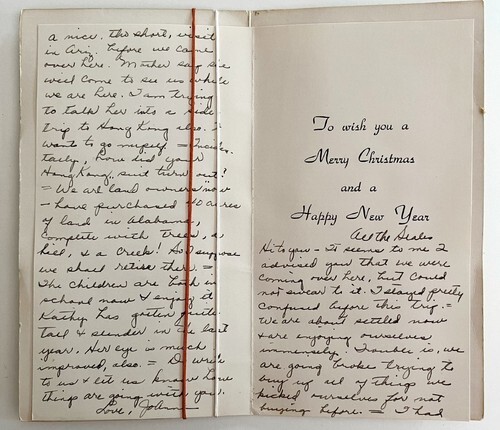 a nice, tho short, visit
in Ariz. before we came
over here. Mother says she
will come to see us while
we are here. I am trying
to talk her into a side
trip to Hong Kong also. I
want to go myself =
how did your
Hong Kong suit turn out!
= We are land owners now
- have purchased 40 acres
of land in Alabama,
complete with trees, a
hill, & a creek! So I suppose
we shall retire there. =
The children are both in
school now & enjoy it
Kathy has gotten quite
tall & slender in the last
year. Her eye is much
improved, also. = Do write
to us & let us know how
things are going with you.
Love, JoAnn
To wish you a
Merry Christmas
and a
Happy New Year
All the
Hi to you - It seems to me I
advised you that we were
coming over here, but could
not swear to it. I stayed pretty
confused before this trip. =
We are about settled now
& are enjoying ourselves
immensely. Trouble is, we
are going broke trying to
buy up all of things we
kicked ourselves for not
buying before. = I had